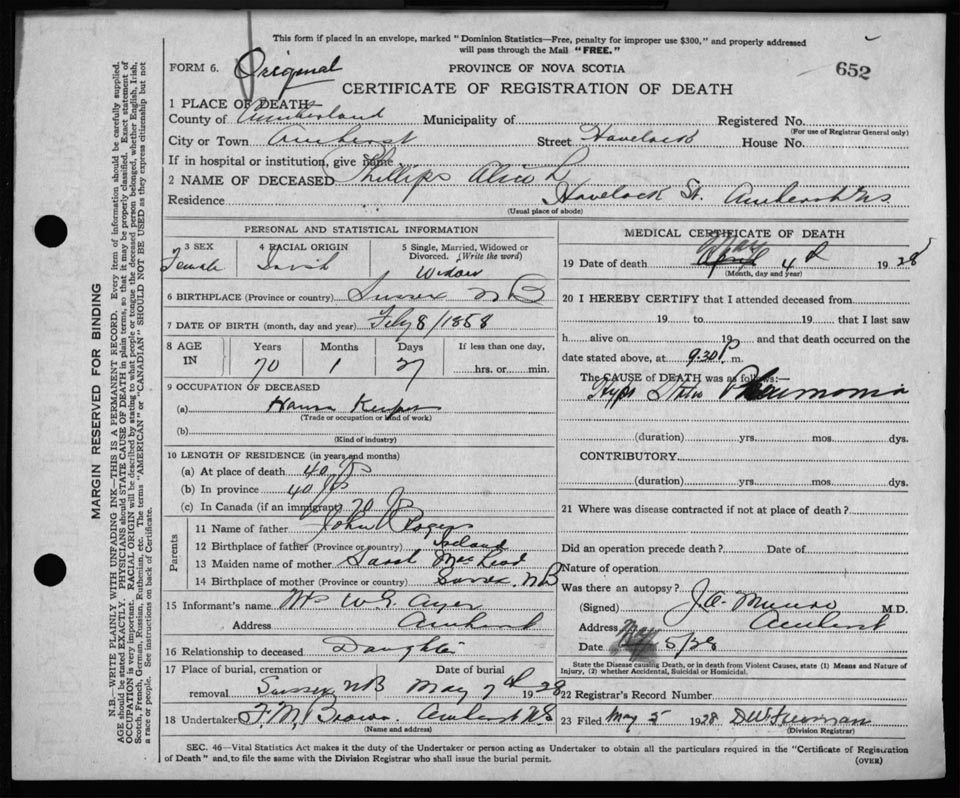 This form if placed in an envelope, marked "Dominion Statistics—Free, penalty for improper use $300," and properly addressed
will pass through the Mail "FREE."
FORM 6. Original
PROVINCE OF NOVA SCOTIA
652
CERTIFICATE OF REGISTRATION OF DEATH
1 PLACE OF DEATH—
County of Cumberland Municipality of Registered No.
(For use of Registrar General only)
City or Town Amherst Street Havelock House No.
If in hospital or institution, give name
2 NAME OF DECEASED Phillips Alice L
Residence Havelock St. Amherst NS
(Usual place of abode)
PERSONAL AND STATISTICAL INFORMATION
3 SEX 4 RACIAL ORIGIN 5 Single, Married, Widowed or
Divorced. (Write the word)
Female Widow
6 BIRTHPLACE (Province or country) Sussex NB
7 DATE OF BIRTH (month, day and year) Feby 8/1858
8 AGE IN Years Months Days If less than one day,
70 1 27 hrs. or min.
9 OCCUPATION OF DECEASED
(a) House Keeper
(Trade or occupation or kind of work)
(b)
(Kind of industry)
10 LENGTH OF RESIDENCE (in years and months)
(a) At place of death 40 yrs
(b) In province 40 yrs
(c) In Canada (if an immigrant) 70
Parents
11 Name of father John Rogers
12 Birthplace of father (Province or country) Ireland
13 Maiden name of mother Sarah MacLeod
14 Birthplace of mother (Province or country) Sussex, NB
15 Informant's name Mrs W. G. Ayer
Address Amherst
16 Relationship to deceased Daughter
17 Place of burial, cremation or Date of burial
removal Sussex NB May 7th 1928
18 Undertaker F. M. Brown. Amherst NS
(Name and address)
MEDICAL CERTIFICATE OF DEATH
May
19 Date of death April 4th 1928
(Month, day and year)
20 I HEREBY CERTIFY that I attended deceased from
19 to 19 that I last saw
h alive on 19 and that death occurred on the
date stated above, at 9.30 P. m.
The CAUSE of DEATH was as follows:—
Pneumonia
(duration) yrs. mos. dys.
CONTRIBUTORY
(duration) yrs. mos. dys.
21 Where was disease contracted if not at place of death?
Did an operation precede death? Date of
Nature of operation
Was there an autopsy?
(Signed) J. A. Munro M.D.
Address Amherst
Date May 5/28
State the Disease causing Death, or in death from Violent Causes, state (1) Means and Nature of
Injury, (2) whether Accidental, Suicidal or Homicidal.
22 Registrar's Record Number
23 Filed May 5 1928
(Division Registrar)
SEC. 46—Vital Statistics Act makes it the duty of the Undertaker or person acting as Undertaker to obtain all the particulars required in the "Certificate of Registration
of Death" and to file the same with the Division Registrar who shall issue the burial permit. (OVER)
MARGIN RESERVED FOR BINDING
N.B.—WRITE PLAINLY WITH UNFADING INK—THIS IS A PERMANENT RECORD. Every item of information should be carefully supplied.
AGE should be stated EXACTLY. PHYSICIANS should STATE CAUSE OF DEATH in plain terms, so that it may be properly classified. Exact statement of
OCCUPATION is very important. RACIAL ORIGIN will be described by stating to what people or tongue the deceased person belonged, whether English, Irish,
Scotch, French, German, Russian, Ruthenian, etc. The terms "AMERICAN" or "CANADIAN" SHOULD NOT BE USED as they express citizenship but not
a race or people. See instructions on back of Certificate.